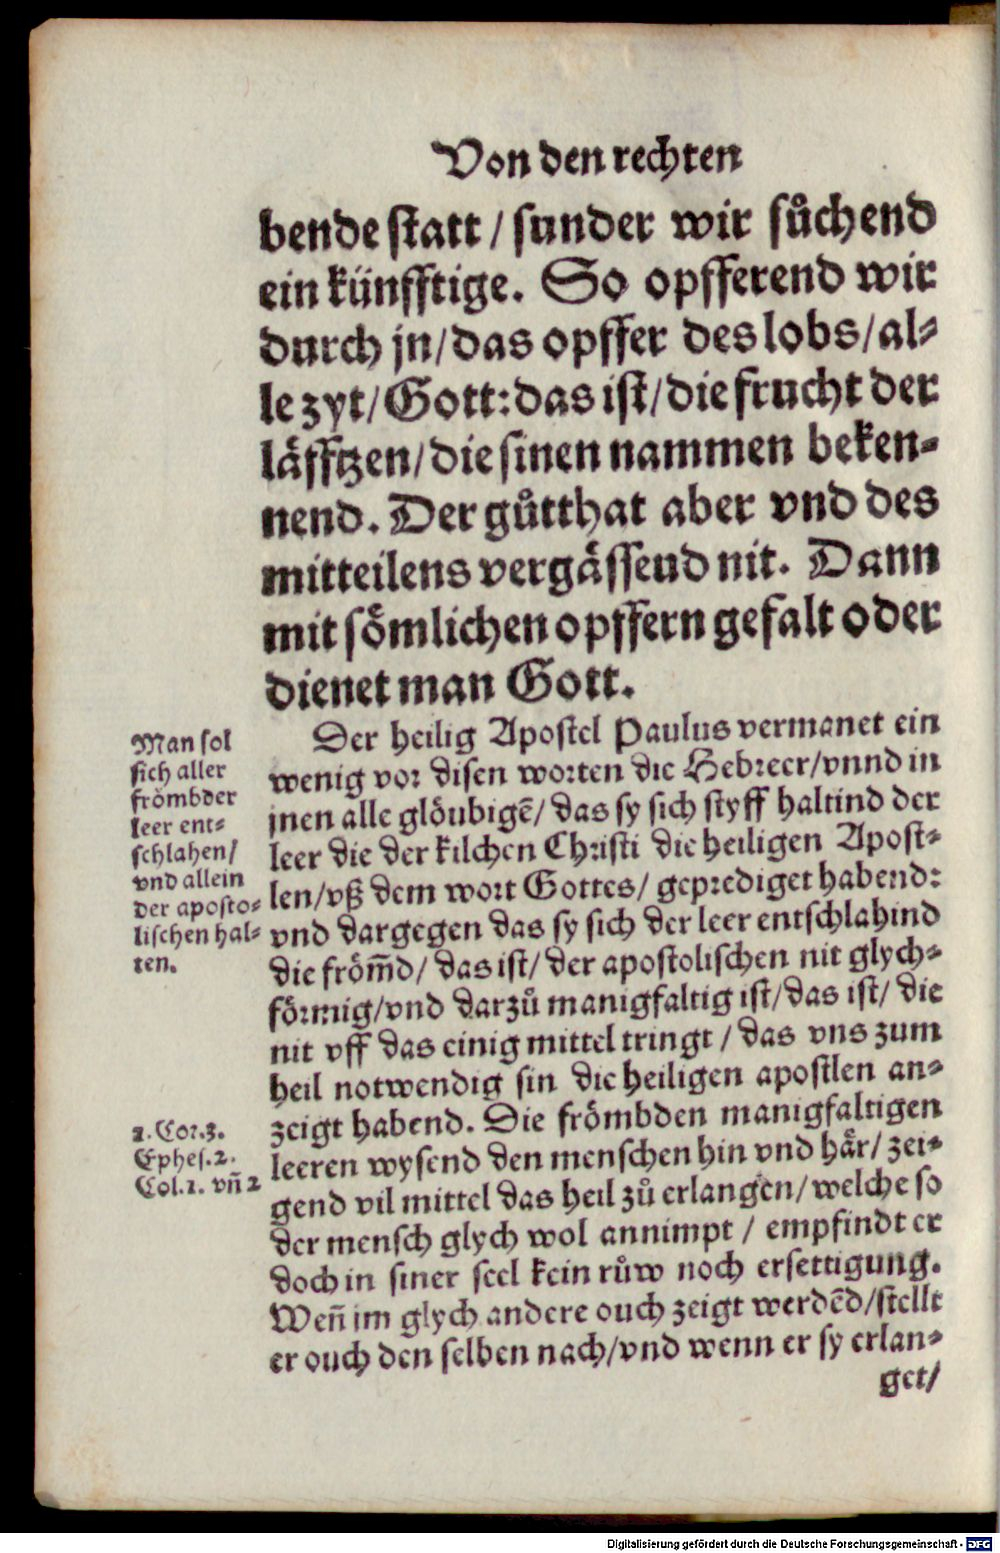 Von den rechten
bende statt / sunder wir sůchend
ein künfftige. So opfferend wir
durch jn/das opffer des lobs/al-
le zyt/Gott:das ist/die frucht der
läfftzen/die sinen nammen beken-
nend. Der gůtthat aber vnd des
mitteilens vergässend nit. Dann
mit sömlichen opffern gefalt oder
dienet man Gott.
Der heilig Apostel Paulus vermanet ein
wenig vor disen worten die Hebreer/vnnd in
jnen alle glöubigē/ das sy sich styff haltind der
leer die der kilchen Christi die heiligen Apost-
len/vß dem wort Gottes/ geprediget habend:
vnd dargegen das sy sich der leer entschlahind
die fröm̄d/ das ist/ der apostolischen nit glych-
förmig/vnd darzů manigfaltig ist/das ist/ die
nit vff das einig mittel tringt / das vns zum
heil notwendig sin die heiligen apostlen an-
zeigt habend. Die frömbden manigfaltigen
leeren wysend den menschen hin vnd här/ zei-
gend vil mittel das heil zů erlangen/welche so
der mensch glych wol annimpt / empfindt er
doch in siner seel kein růw noch ersettigung.
Wen̄ im glych andere ouch zeigt werdēd/stellt
er ouch den selben nach/vnd wenn er sy erlan-
get/
Man sol
sich aller
frömbder
leer ent-
schlahen/
vnd allein
der aposto-
lischen hal-
ten.
1. Cor.3.
Ephes.2.
Col.1. vn̄ 2
Digitalisierung gefördert durch die Deutsche Forschungsgemeinschaft - DFG